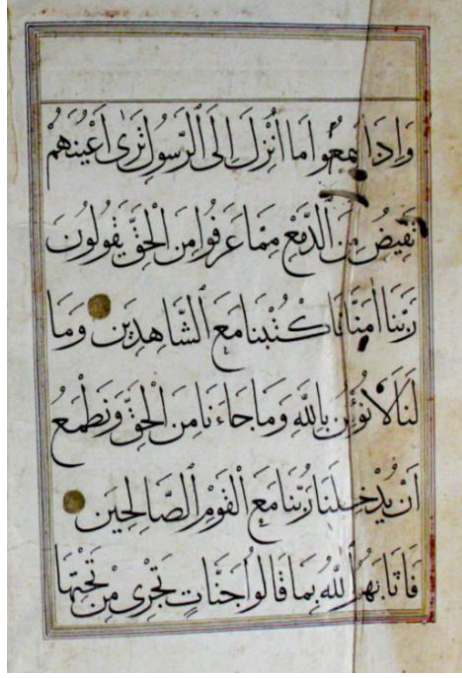 وَاِذَا سَمِعُوا مَا اُنْزِلَ اِلَى الرَّسُولِ تَرٰى اَعْيُنَهُمْ
تَفِيضُ مِنَ الدَّمْعِ مِمَّا عَرَفُوا مِنَ الْحَقِّ يَقُولُونَ
رَبَّنَا اٰمَنَّا فَاكْتُبْنَا مَعَ الشَّاهِدِينَ وَمَا
لَنَا لَا نُؤْمِنُ بِاللّٰهِ وَمَا جَاءَنَا مِنَ الْحَقِّ وَنَطْمَعُ
اَنْ يُدْخِلَنَا رَبُّنَا مَعَ الْقَوْمِ الصَّالِحِينَ
فَاَثَابَهُمُ اللّٰهُ بِمَا قَالُوا جَنَّاتٍ تَجْرِى مِنْ تَحْتِهَا